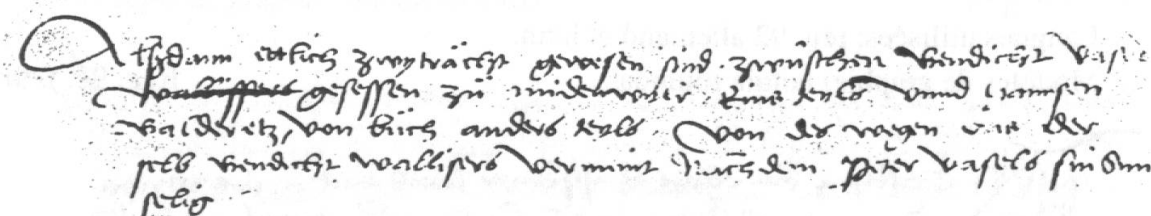 Allsdann ettlich zwyträcht gewesen sind zwüschen Bendicht Vasel
gesessen zu nider Eins teyls vnnd Hannsen
Balderetz, von Buch anders teyls. Von des wegen das der
selb Bendicht Wallisers vermeint Nachdem Peter Vasels sin Sun
selig